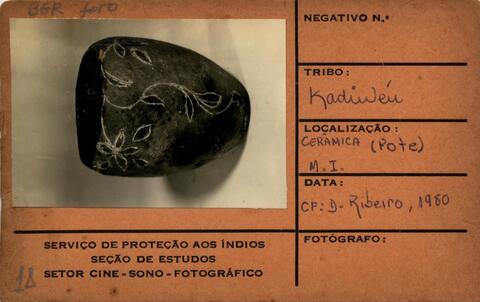 BGR foro
NEGATIVO N.º
TRIBO:
Kadiwéu
LOCALIZAÇÃO:
CERÂMICA (Pote)
M.I.
DATA:
CF: D. Ribeiro, 1980
FOTÓGRAFO:
SERVIÇO DE PROTEÇÃO AOS ÍNDIOS
SEÇÃO DE ESTUDOS
SETOR CINE-SONO-FOTOGRÁFICO
18